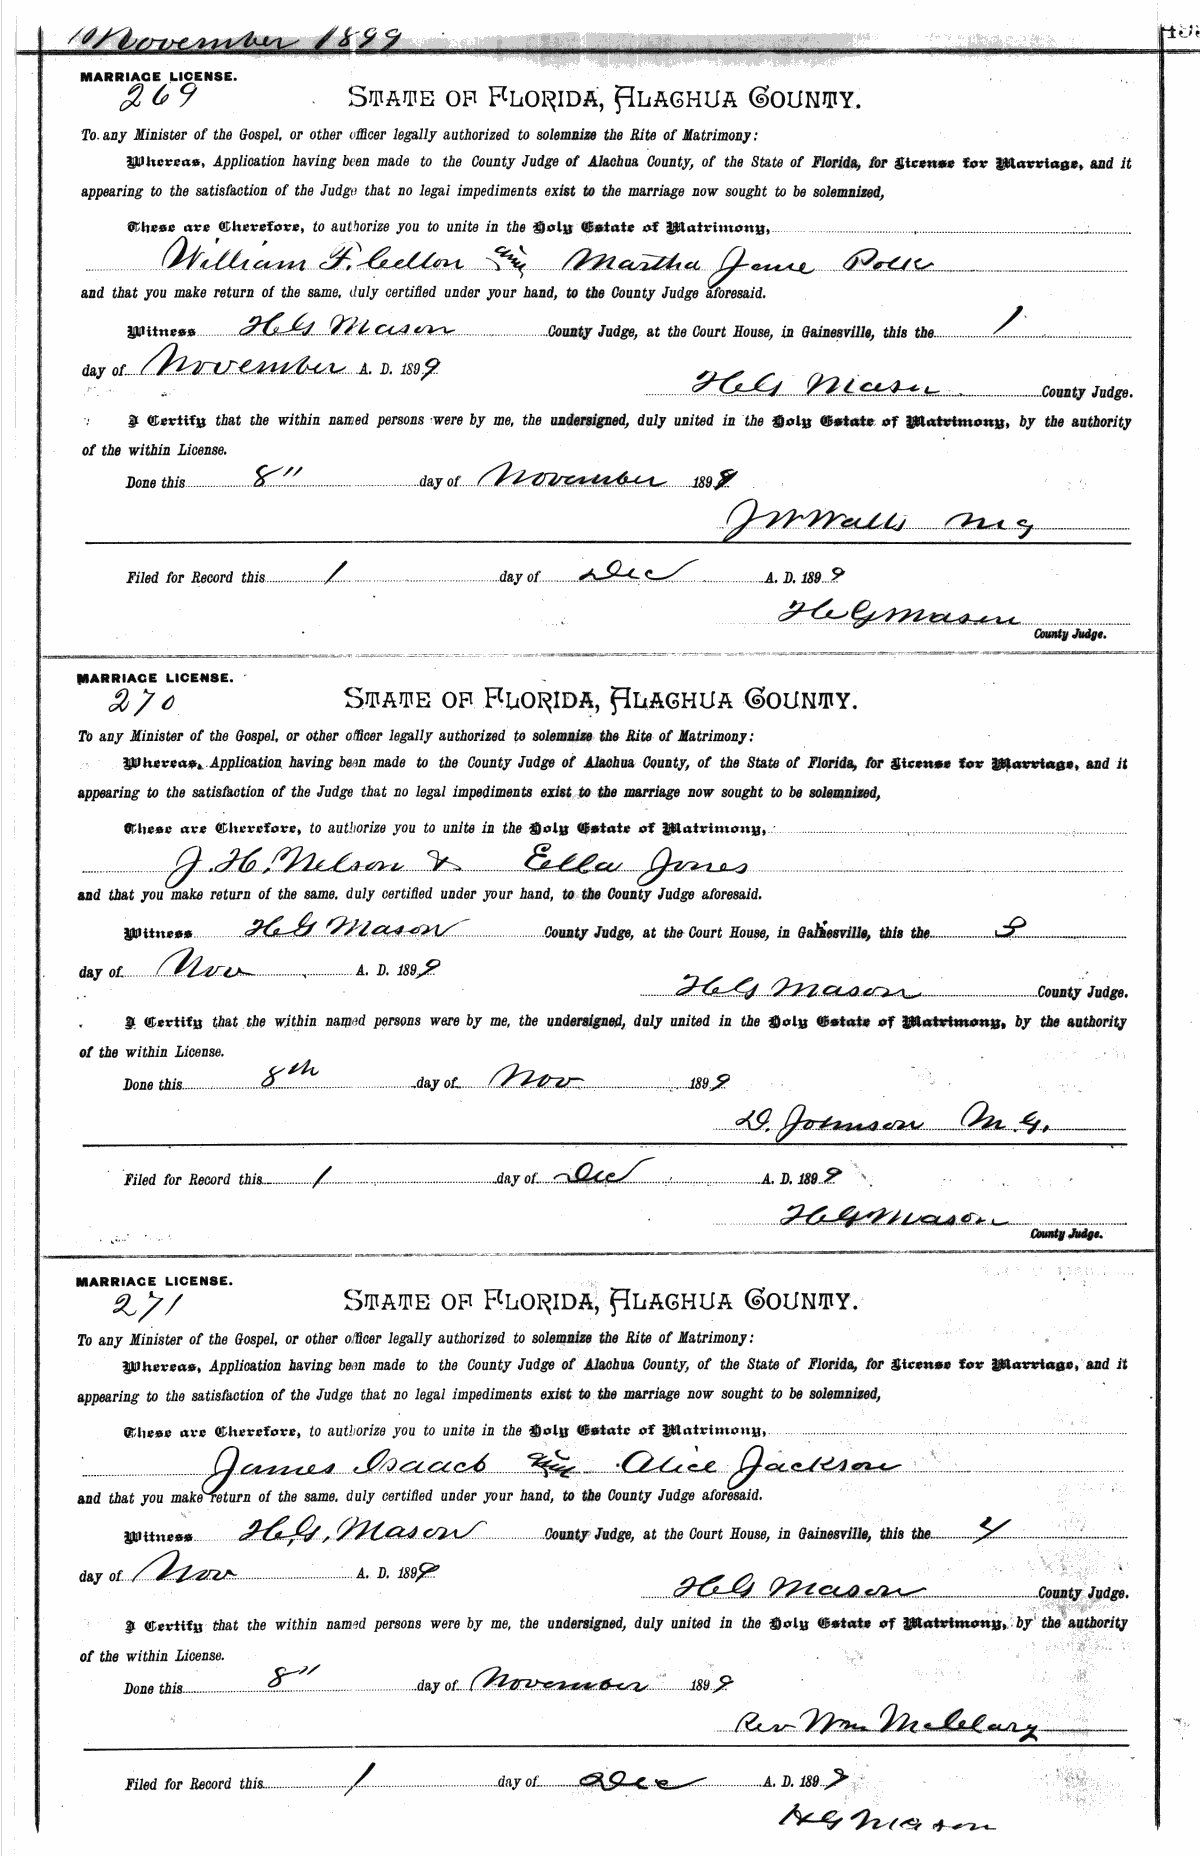 November 1899
MARRIAGE LICENSE.
269
STATE OF FLORIDA, ALACHUA COUNTY.
To any Minister of the Gospel, or other officer legally authorized to solemnize the Rite of Matrimony:
Whereas, Application having been made to the County Judge of Alachua County, of the State of Florida, for License for Marriage, and it
appearing to the satisfaction of the Judge that no legal impediments exist to the marriage now sought to be solemnized,
These are Therefore, to authorize you to unite in the Holy Estate of Matrimony,
William F. Cellon and Martha Jane Polk
and that you make return of the same, duly certified under your hand, to the County Judge aforesaid.
Witness H G Mason County Judge, at the Court House, in Gainesville, this the 1
day of November A. D. 1899
H G Mason County Judge.
I Certify that the within named persons were by me, the undersigned, duly united in the Holy Estate of Matrimony, by the authority
of the within License.
Done this 8" day of November 1899
J W Walls M G
Filed for Record this 1 day of Dec A. D. 1899
H G Mason
County Judge.
MARRIAGE LICENSE.
270
STATE OF FLORIDA, ALACHUA COUNTY.
To any Minister of the Gospel, or other officer legally authorized to solemnize the Rite of Matrimony:
Whereas, Application having been made to the County Judge of Alachua County, of the State of Florida, for License for Marriage, and it
appearing to the satisfaction of the Judge that no legal impediments exist to the marriage now sought to be solemnized,
These are Therefore, to authorize you to unite in the Holy Estate of Matrimony,
J. H. Nelson & Ella Jones
and that you make return of the same, duly certified under your hand, to the County Judge aforesaid.
Witness H G Mason County Judge, at the Court House, in Gainesville, this the 3
day of Nov A. D. 1899
H G Mason County Judge.
I Certify that the within named persons were by me, the undersigned, duly united in the Holy Estate of Matrimony, by the authority
of the within License.
Done this 8th day of Nov 1899
D. Johnson M. G.
Filed for Record this 1 day of Dec A. D. 1899
H G Mason
County Judge.
MARRIAGE LICENSE.
271
STATE OF FLORIDA, ALACHUA COUNTY.
To any Minister of the Gospel, or other officer legally authorized to solemnize the Rite of Matrimony:
Whereas, Application having been made to the County Judge of Alachua County, of the State of Florida, for License for Marriage, and it
appearing to the satisfaction of the Judge that no legal impediments exist to the marriage now sought to be solemnized,
These are Therefore, to authorize you to unite in the Holy Estate of Matrimony,
James Isaacs and Alice Jackson
and that you make return of the same, duly certified under your hand, to the County Judge aforesaid.
Witness H. G. Mason County Judge, at the Court House, in Gainesville, this the 4
day of Nov A. D. 1899
H G Mason County Judge.
I Certify that the within named persons were by me, the undersigned, duly united in the Holy Estate of Matrimony, by the authority
of the within License.
Done this 8" day of November 1899
Rev Wm McClary
Filed for Record this 1 day of Dec A. D. 1899
H G Mason